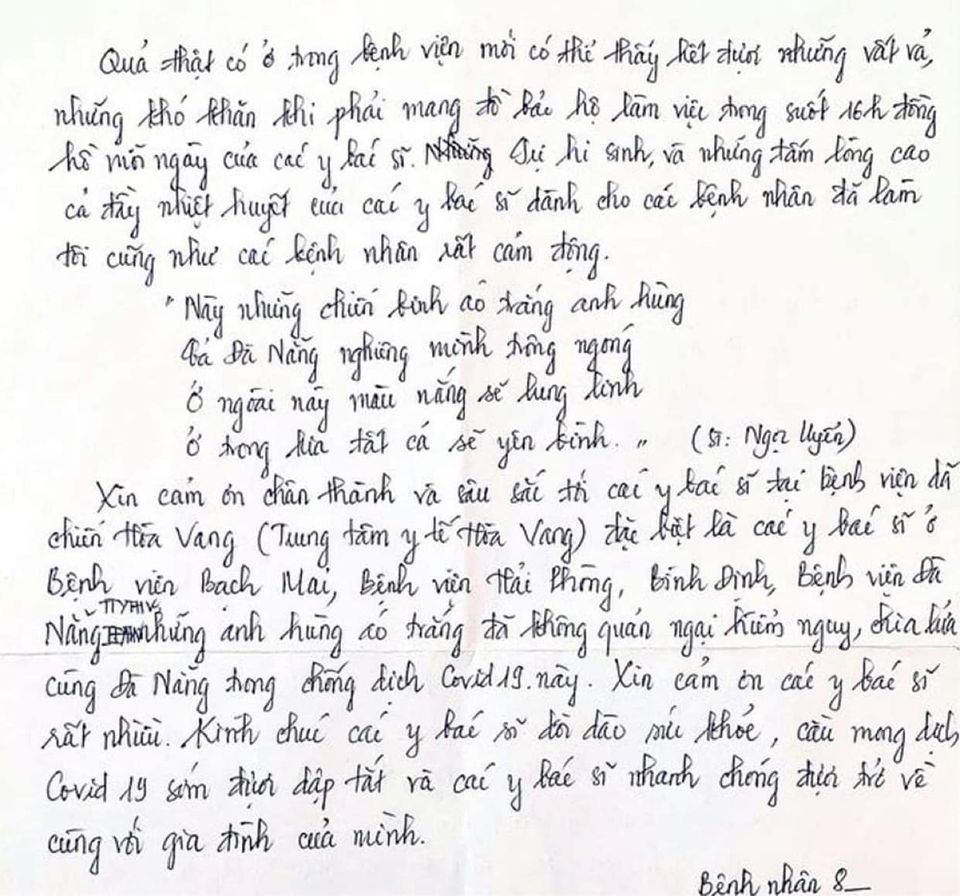 Quả thật có ở trong bệnh viện mới có thể thấy hết được những vất vả,
những khó khăn khi phải mang đồ bảo hộ làm việc trong suốt 16h đồng
hồ mỗi ngày của các y bác sĩ. Những Sự hi sinh, và những tấm lòng cao
cả đầy nhiệt huyết của các y bác sĩ dành cho các bệnh nhân đã làm
tôi cũng như các bệnh nhân rất cảm động.
" Này những chiến binh áo trắng anh hùng
Cả Đà Nẵng nghiêng mình trông ngóng
Ở ngoài này màu nắng sẽ lung linh
Ở trong kia tất cả sẽ yên bình. " (St: Ngọc Uyển)
Xin cảm ơn chân thành và sâu sắc tới các y bác sĩ tại bệnh viện dã
chiến Hòa Vang (Trung tâm y tế Hòa Vang) đặc biệt là các y bác sĩ ở
Bệnh viện Bạch Mai, Bệnh viện Hải Phòng, Bình Định, Bệnh viện Đà
Nẵng những anh hùng áo trắng đã không quản ngại hiểm nguy, chia lửa
cùng Đà Nẵng trong chống dịch Covid 19 này. Xin cảm ơn các y bác sĩ
rất nhiều. Kính chúc các y bác sĩ dồi dào sức khỏe, cầu mong dịch
Covid 19 sớm được dập tắt và các y bác sĩ nhanh chóng được trở về
cùng với gia đình của mình.
Bệnh nhân 8_